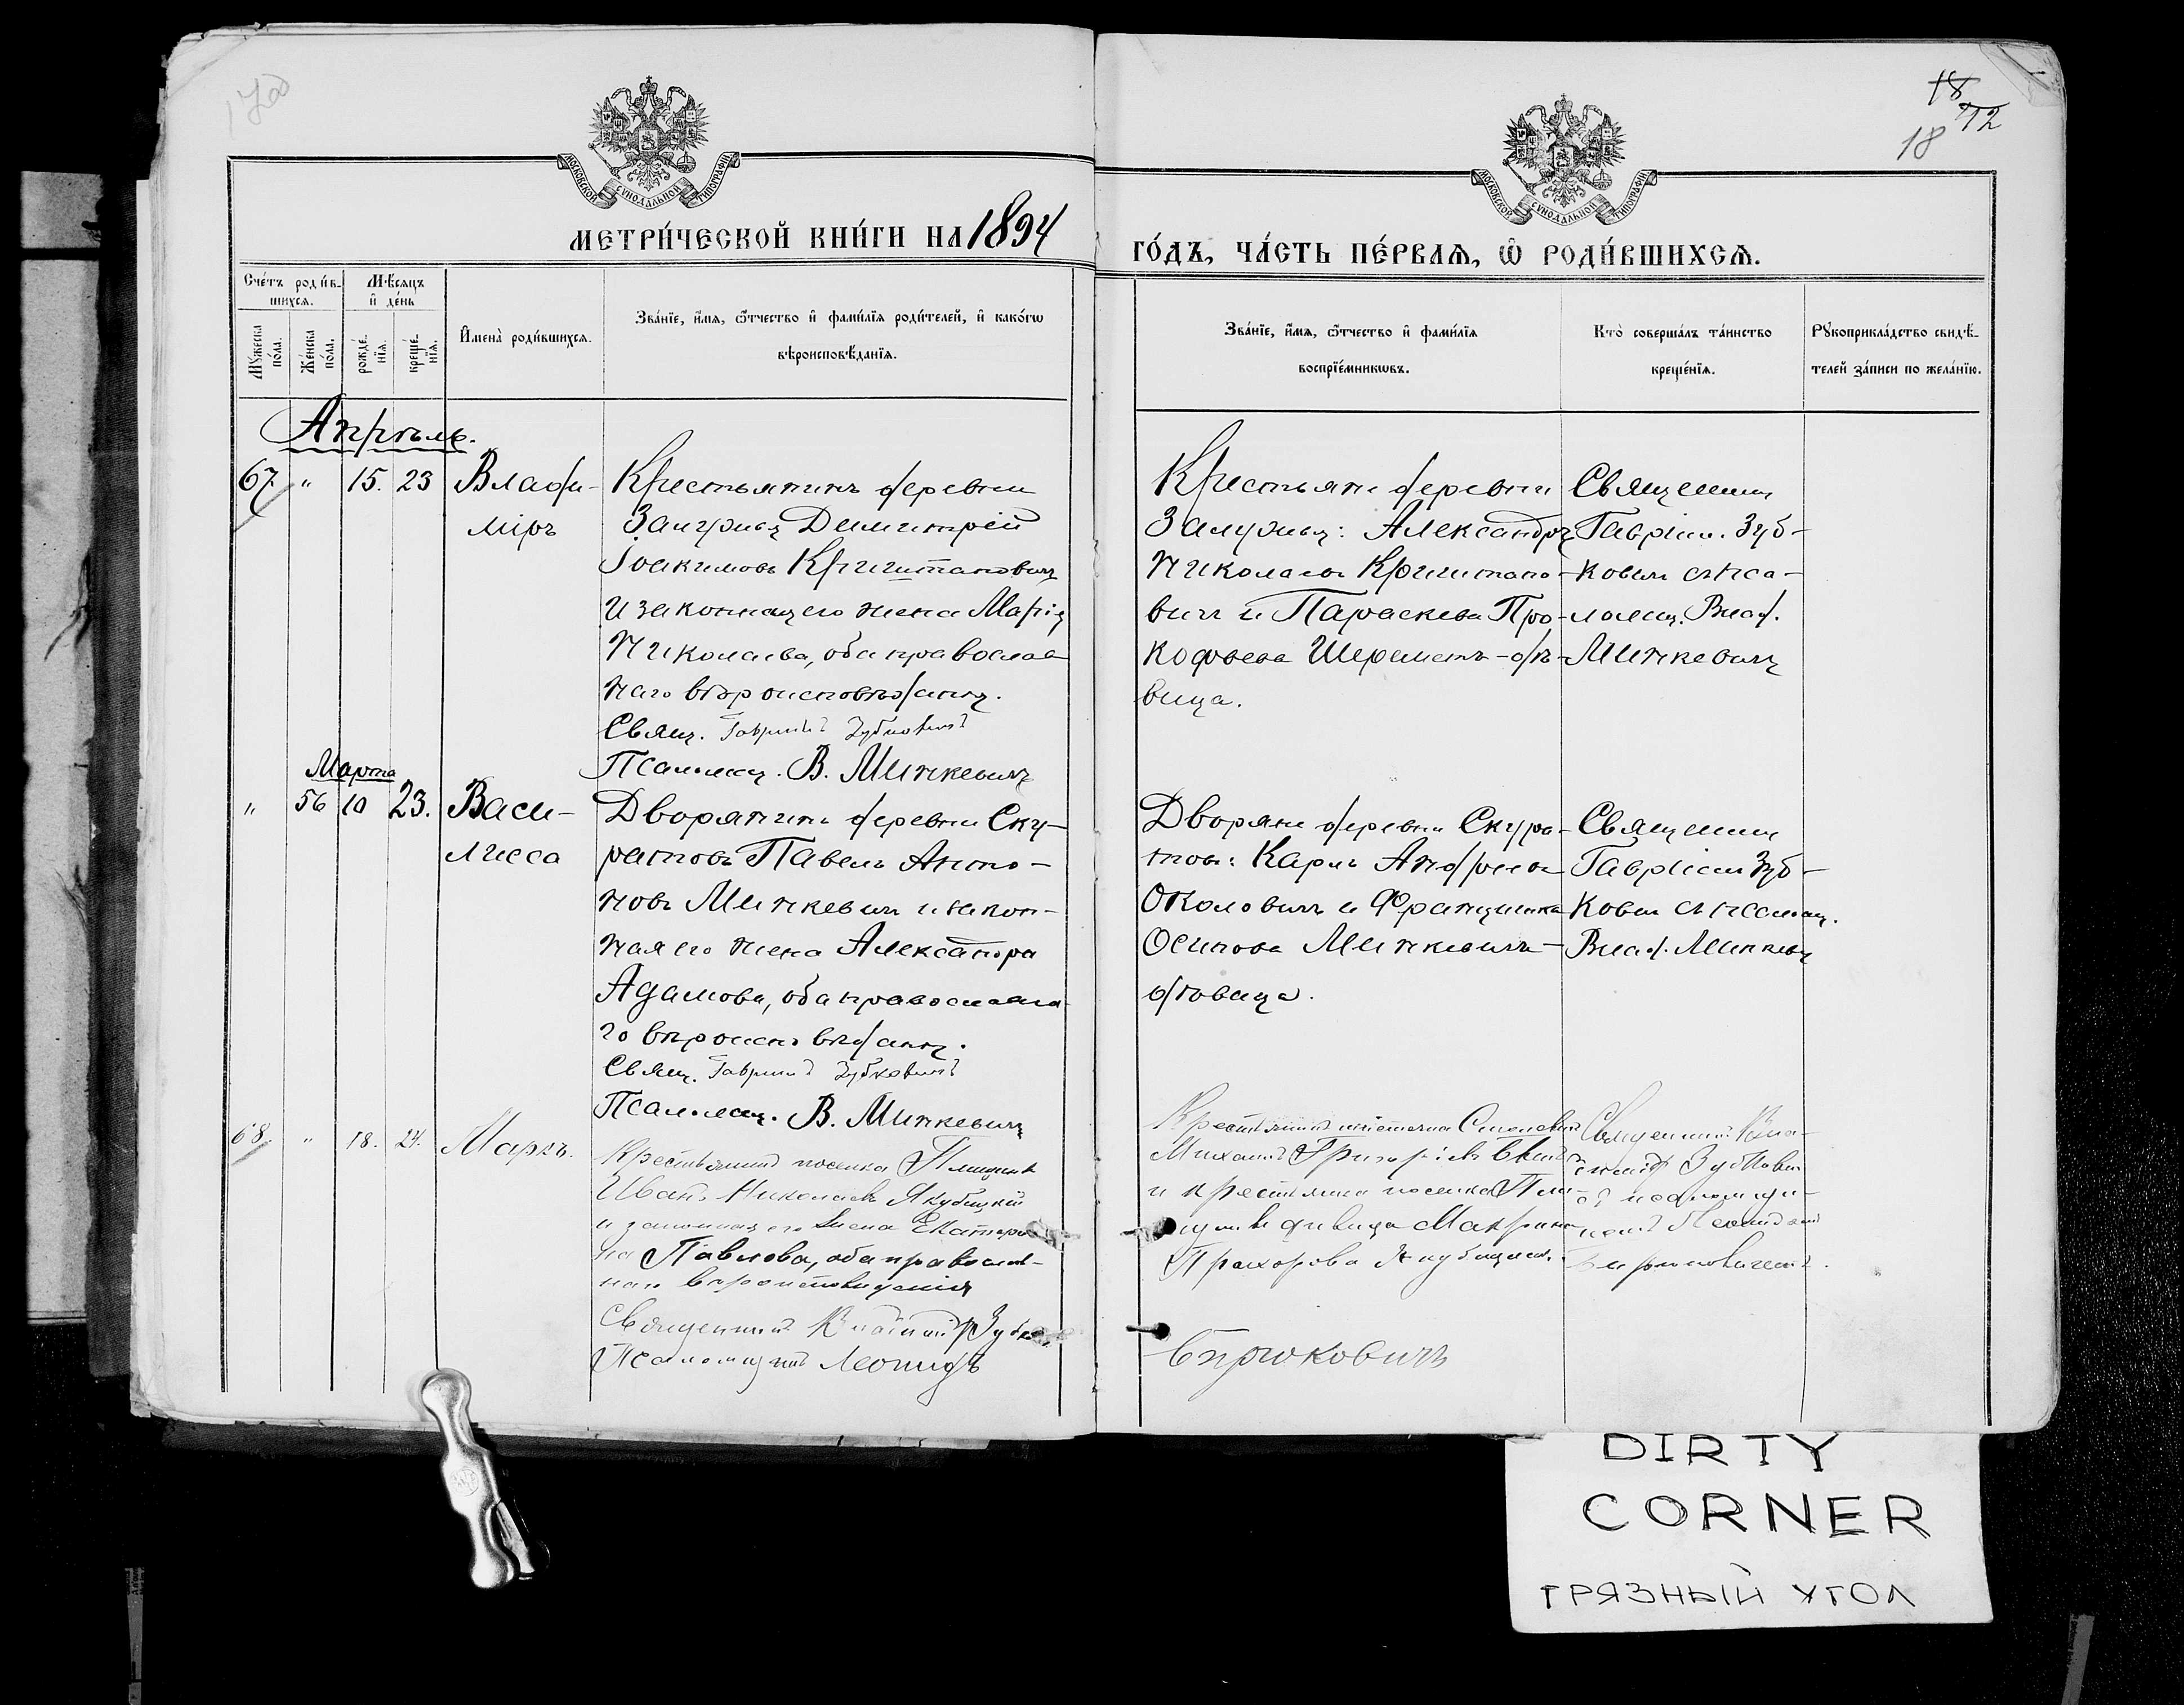 18
12
18
МОСКОВСКОЙ СѴНОДАЛЬНОЙ ТИПОГРАФІИ
МОСКОВСКОЙ СѴНОДАЛЬНОЙ ТИПОГРАФІИ
МЕТРИ́ЧЕСКОЙ КНИ́ГИ НА 1894
ГО́ДЪ, ЧА́СТЬ ПЕ́РВАѦ, Ѿ РОДИ́ВШИХСѦ.
Сче́тъ роди́в-
шихся.
Мѣсяцъ
и҆ де́нь
Мꙋ́жеска по́ла.
Же́нска по́ла.
рожде́нїя.
креще́нїя.
И҆мена̀ роди́вшихся.
Зва́нїе, и҆́мя, ѻ҆́тчество и҆ фами́лїя роди́телей, и҆ како́гѡ
вѣроисповѣ́данїя.
Зва́нїе, и҆́мя, ѻ҆́тчество и҆ фами́лїя
воспрїе́мникѡвъ.
Кто̀ соверша́лъ та́инство
креще́нїя.
Рꙋкоприкла́дство свидѣ́-
телей за́писи по жела́нїю.
Апрѣль.
67. " 15. 23 Влади-
міръ
Крестьянинъ деревни
Димитрій
Іоакимовъ Криштановичъ
и законная его жена Марія
Николаева, оба православ
наго вѣроисповѣданія.
Свящ. Гавріилъ Зубковичъ
Псаломщ. В. Минкевичъ
Крестьяне деревни
Александръ
Николаевъ Криштано-
вичъ и Параскева Про-
кофьева Шереметъ-дѣ-
вица.
Священникъ
Гавріилъ Зуб-
ковичъ съ пса-
ломщ. Влад.
Минкевичъ
Марта
" 56 10 23. Васи-
лисса
Дворянинъ деревни Ску-
ратовъ Павелъ Анто-
новъ Минкевичъ и закон-
ная его жена Александра
Адамова, оба православна
го вѣроисповѣданія.
Свящ. Гавріилъ Зубковичъ
Псаломщ. В. Минкевичъ
Дворяне деревни Скура-
товъ: Карлъ Андреевъ
Околовичъ и Францишка
Осипова Минкевичъ-
дѣвица.
Священникъ
Гавріилъ Зуб-
ковичъ съ псаломщ.
Влад. Минкевичъ
68. " 18. 24. Маркъ.
Крестьянинъ поселка
Иванъ Николаевъ Якубицкій
и законная его жена Екатери-
на Павлова, оба православ-
наго вѣроисповѣданія
Священникъ
Псаломщикъ Леонидъ
Крестьянинъ
Михаилъ Григорьевъ
и крестьянка поселка
дѣвица Макрина
Прохорова Якубицкая.
Священникъ
Зубкович
псаломщи-
комъ Леонидомъ
Бирюковичемъ.
Бирюковичъ
DIRTY
CORNER
ГРЯЗНЫЙ УГОЛ